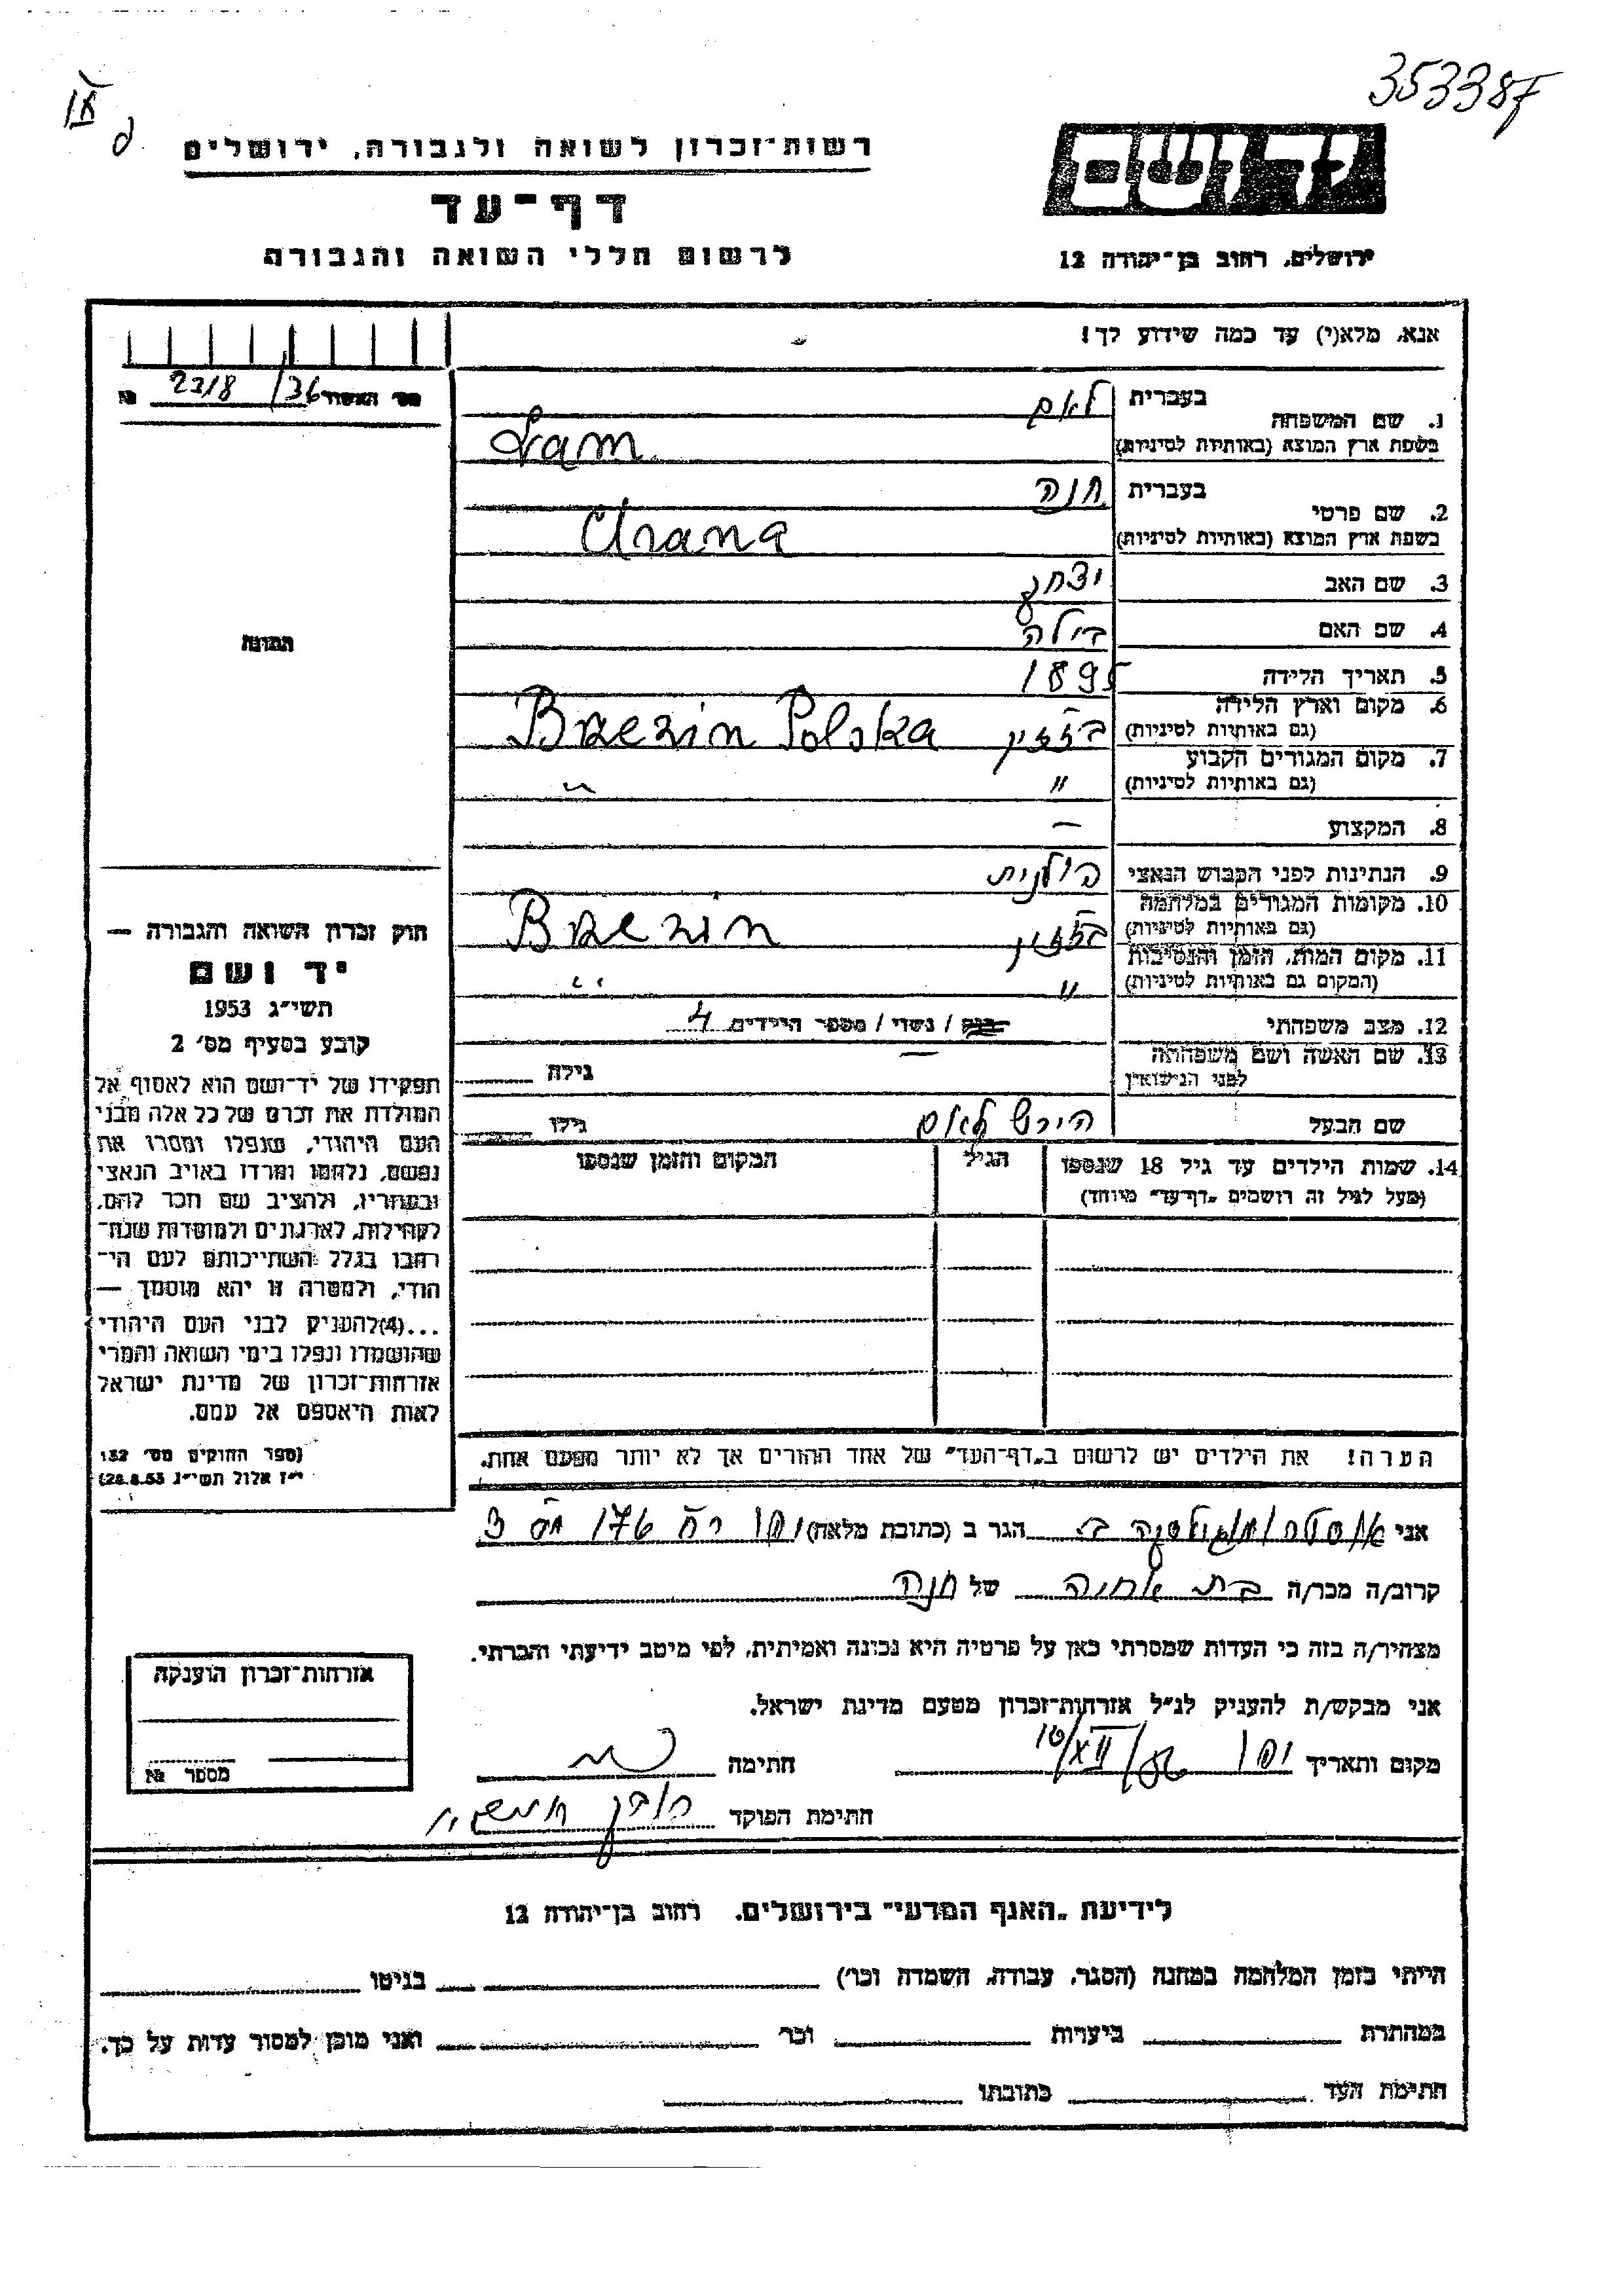 353387
רשות־זכרון לשואה ולגבורה, ירושלים
דף־עד
לרשום חללי השואה והגבורה
יד ושם
ירושלים, רחוב בן־יהודה 12
אנא, מלא(י) עד כמה שידוע לך!
מס׳ האשור 36/ 23/8 №
1. שם המשפחה
בעברית לאם
בשפת ארץ המוצא (באותיות לטיניות) Lam
2. שם פרטי
בעברית חנה
בשפת ארץ המוצא (באותיות לטיניות) Chana
3. שם האב יצחק
4. שם האם ביילה
5. תאריך הלידה 1895
6. מקום וארץ הלידה
(גם באותיות לטיניות) בזזין Brzezin Polska
7. מקום המגורים הקבוע
(גם באותיות לטיניות) " "
8. המקצוע —
9. הנתינות לפני הכבוש הנאצי פולנית
10. מקומות המגורים במלחמה
(גם באותיות לטיניות) Brzezin
11. מקום המות, הזמן והנסיבות
(המקום גם באותיות לטיניות) " "
12. מצב משפחתי רווק / נשוי / מספר הילדים 4
13. שם האשה ושם משפחתה
לפני הנישואין — גילה
שם הבעל הירש לאם גילו
14. שמות הילדים עד גיל 18 שנספו
(מעל לגיל זה רושמים „דף־עד״ מיוחד)
הגיל
המקום והזמן שנספו
הערה! את הילדים יש לרשום ב„דף־העד״ של אחד ההורים אך לא יותר מפעם אחת.
התמונה
חוק זכרון השואה והגבורה —
יד ושם
תשי״ג 1953
קובע בסעיף מס׳ 2
תפקידו של יד־ושם הוא לאסוף אל
המולדת את זכרם של כל אלה מבני
העם היהודי, שנפלו ומסרו את
נפשם, נלחמו ומרדו באויב הנאצי
ובעוזריו, ולהציב שם וזכר להם,
לקהילות, לארגונים ולמוסדות שנח־
רבו בגלל השתייכותם לעם הי־
הודי, ולמטרה זו יהא מוסמך —
...(4)להעניק לבני העם היהודי
שהושמדו ונפלו בימי השואה והמרי
אזרחות־זכרון של מדינת ישראל
לאות היאספם אל עמם.
(ספר החוקים מס׳ 132
י״ז אלול תשי״ג 28.8.53)
אני אסתר הגר ב (כתובת מלאה) יפו רח 176 מס 3
קרוב/ה מכר/ה בת אחיה של חנה
מצהיר/ה בזה כי העדות שמסרתי כאן על פרטיה היא נכונה ואמיתית, לפי מיטב ידיעתי והכרתי.
אני מבקש/ת להעניק לנ״ל אזרחות־זכרון מטעם מדינת ישראל.
מקום ותאריך יפו 10/XII/56 חתימה
חתימת הפוקד
אזרחות־זכרון הוענקה
מספר №
לידיעת „האגף המדעי״ בירושלים. רחוב בן־יהודה 12
הייתי בזמן המלחמה במחנה (הסגר, עבודה, השמדה וכו׳) בגיטו
במחתרת ביערות וכו׳ ואני מוכן למסור עדות על כך.
חתימת העד כתובתו